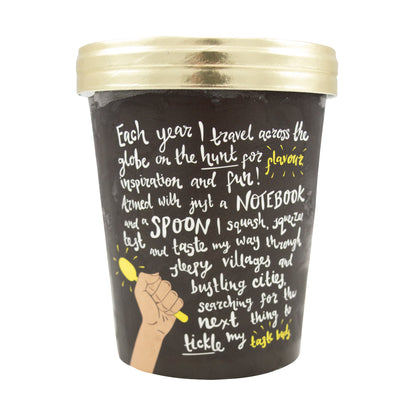 Each year I travel across the
globe on the hunt for flavour,
inspiration and fun!
Armed with just a NOTEBOOK
and a SPOON I squash, squeeze
test and taste my way through
sleepy villages and
bustling cities,
searching for the
next thing to
tickle my taste buds